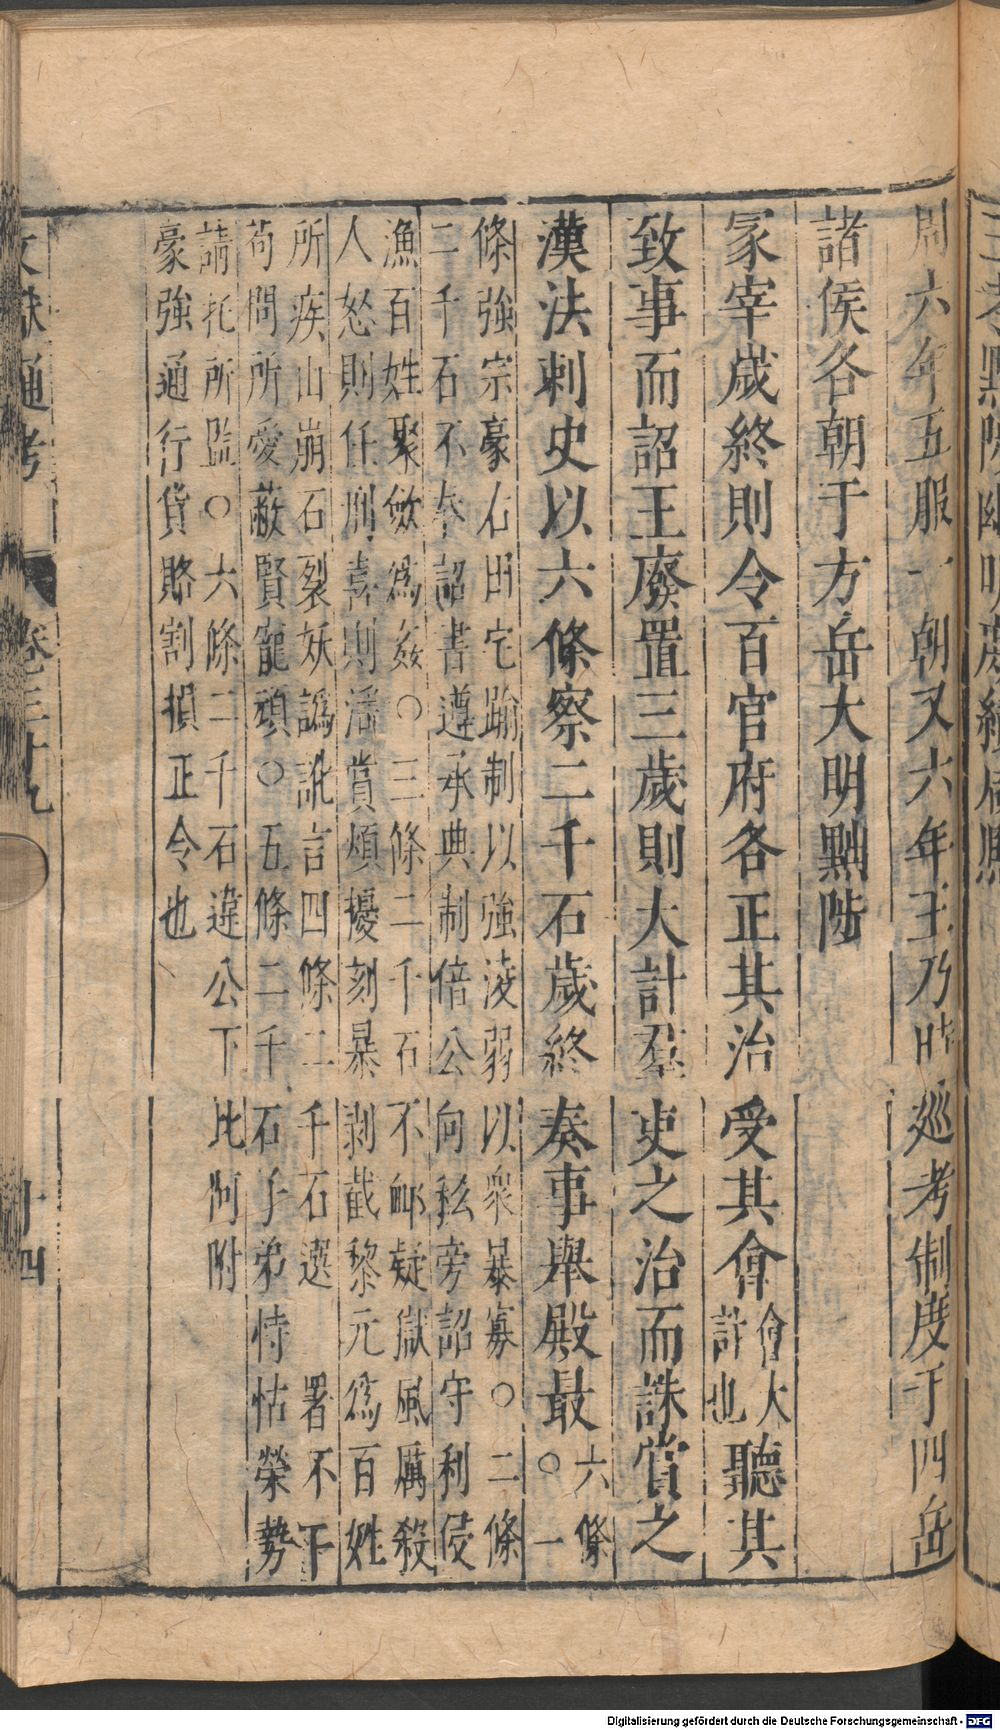 周六年五服一朝又六年王乃時巡考制度于四岳
諸侯各朝于方岳大明黜陟
冡宰歲終則令百官府各正其治受其會會大計也聽其
致事而詔王廢置三歲則大計羣吏之治而誅賞之
漢法刺史以六條察二千石歲終奏事舉殿最六條○一
條強宗豪右田宅踰制以強淩弱以衆暴寡○二條
二千石不奉詔書遵承典制倍公向私旁詔守利侵
漁百姓聚斂爲姦○三條二千石不卹疑獄風厲殺
人怒則任刑喜則淫賞煩擾刻暴剥截黎元爲百姓
所疾山崩石裂妖譌訛言四條二千石選署不下
苟問所愛蔽賢寵頑○五條二千石子弟恃怙榮勢
請托所監○六條二千石違公下比阿附
豪強通行貨賂割損正令也
文獻通考 卷三十九 十四
Digitalisierung gefördert durch die Deutsche Forschungsgemeinschaft - DFG